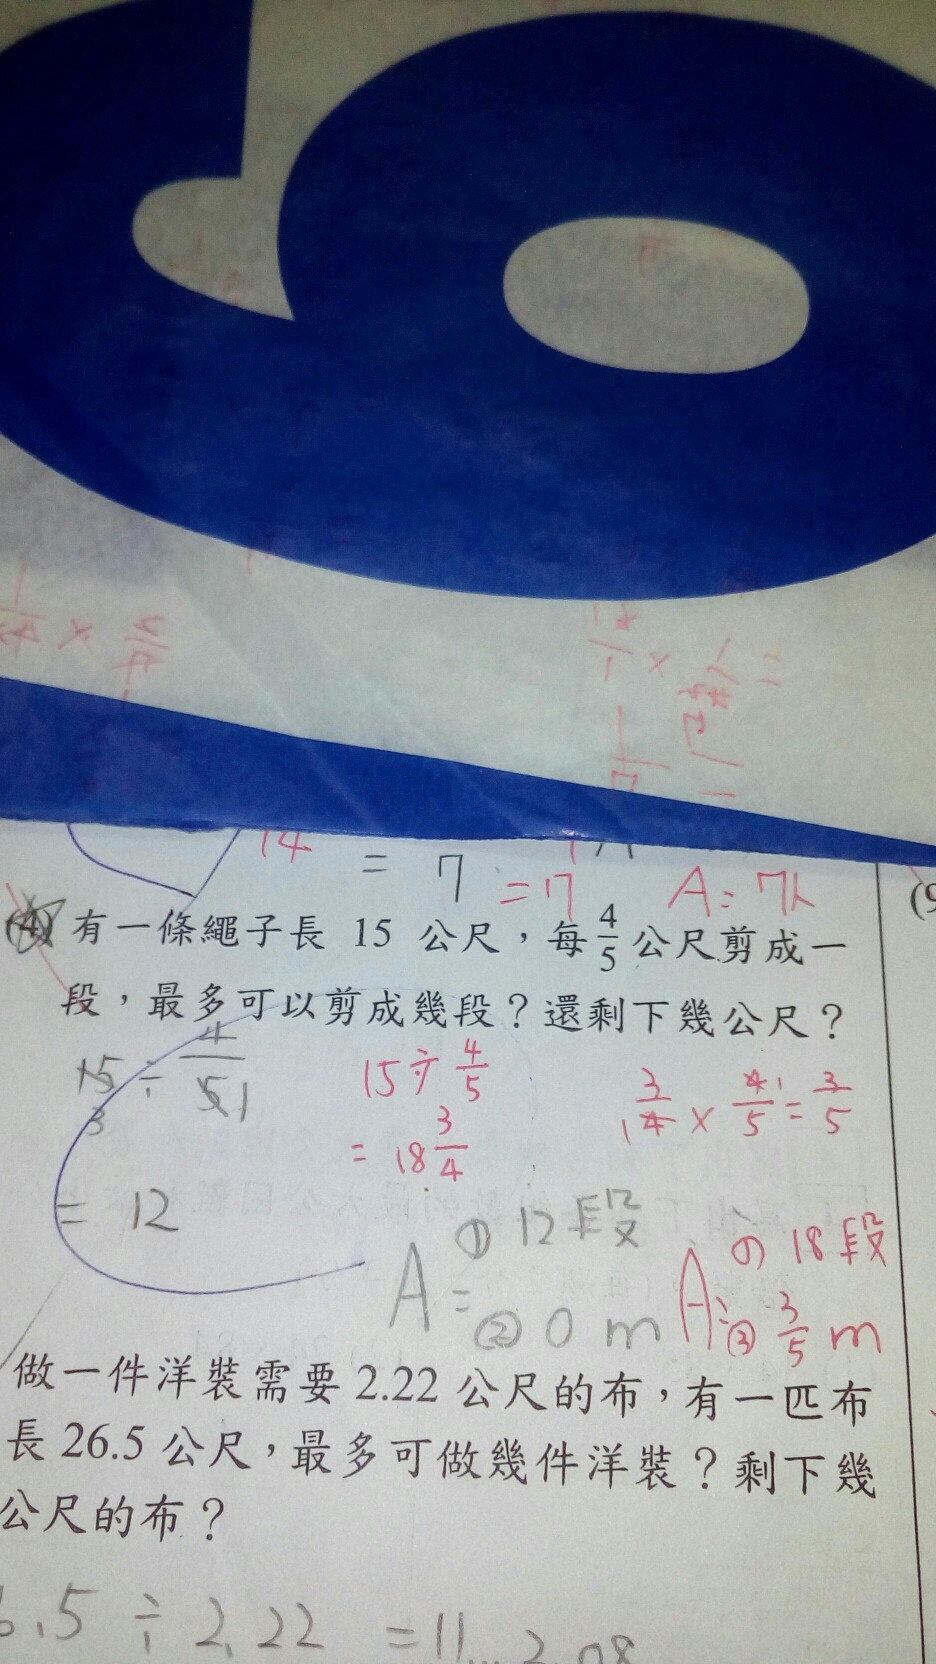 14 = 7 = 17 A: 7人
(4) 有一條繩子長 15 公尺，每 4/5 公尺剪成一
段，最多可以剪成幾段？還剩下幾公尺？
15 ÷ 4/5
3 1
= 12
15 ÷ 4/5
= 18 3/4
3/4 × 4/5 = 3/5
1 1
A = ① 12段
② 0 m
A: ① 18段
② 3/5 m
做一件洋裝需要 2.22 公尺的布，有一匹布
長 26.5 公尺，最多可做幾件洋裝？剩下幾
公尺的布？
6.5 ÷ 2.22 = 11...2.08
(9